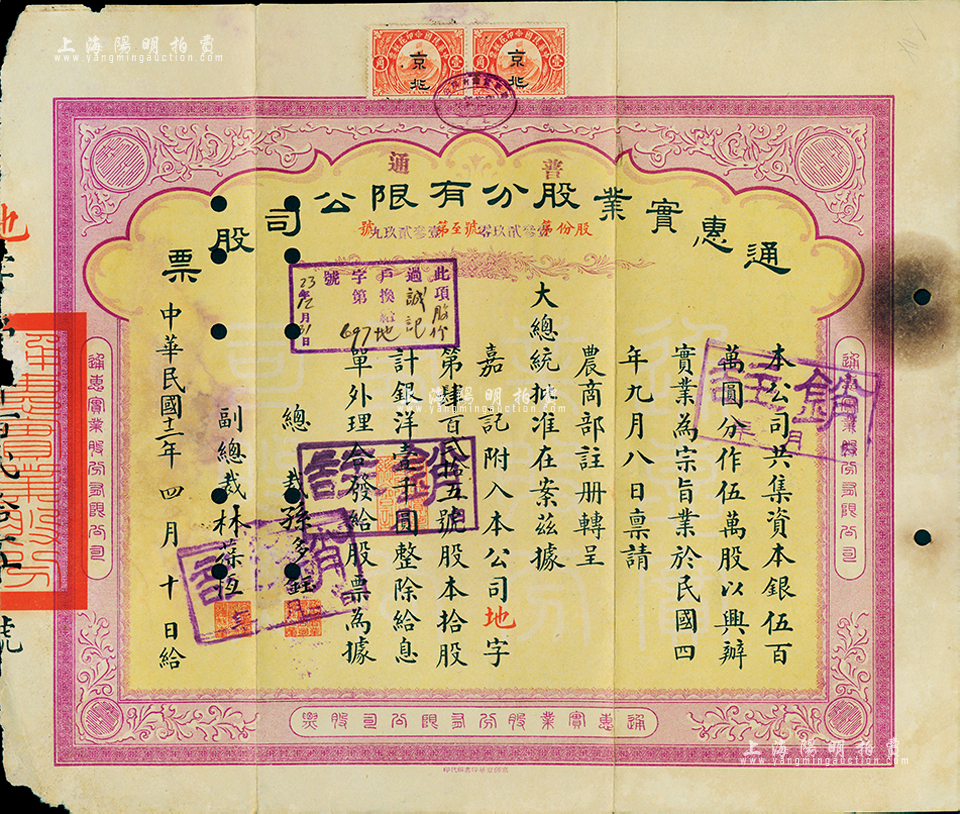 上海陽明拍賣
www.yangmingauction.com
京兆
京兆
普通
通惠實業股分有限公司股票
本公司共集資本銀伍百
萬圓分作伍萬股以興辦
實業為宗旨業於民國四
年九月八日稟請
農商部註册轉呈
大總統批准在案茲據
嘉記附入本公司地字
第肆百弍拾五號股本拾股
計銀洋壹千圓整除給息
單外理合發給股票為據
總裁孫多鈺
副總裁林葆恆
中華民國十二年四月十日給
此項股份
過誠記
戶換給地
字第697
號
23年12月31日
註銷
註銷
註銷
通惠實業股分有限公司
通惠實業股分有限公司
通惠實業股分有限公司股票
上海陽明拍賣
www.yangmingauction.com
上海陽明拍賣
www.yangmingauction.com